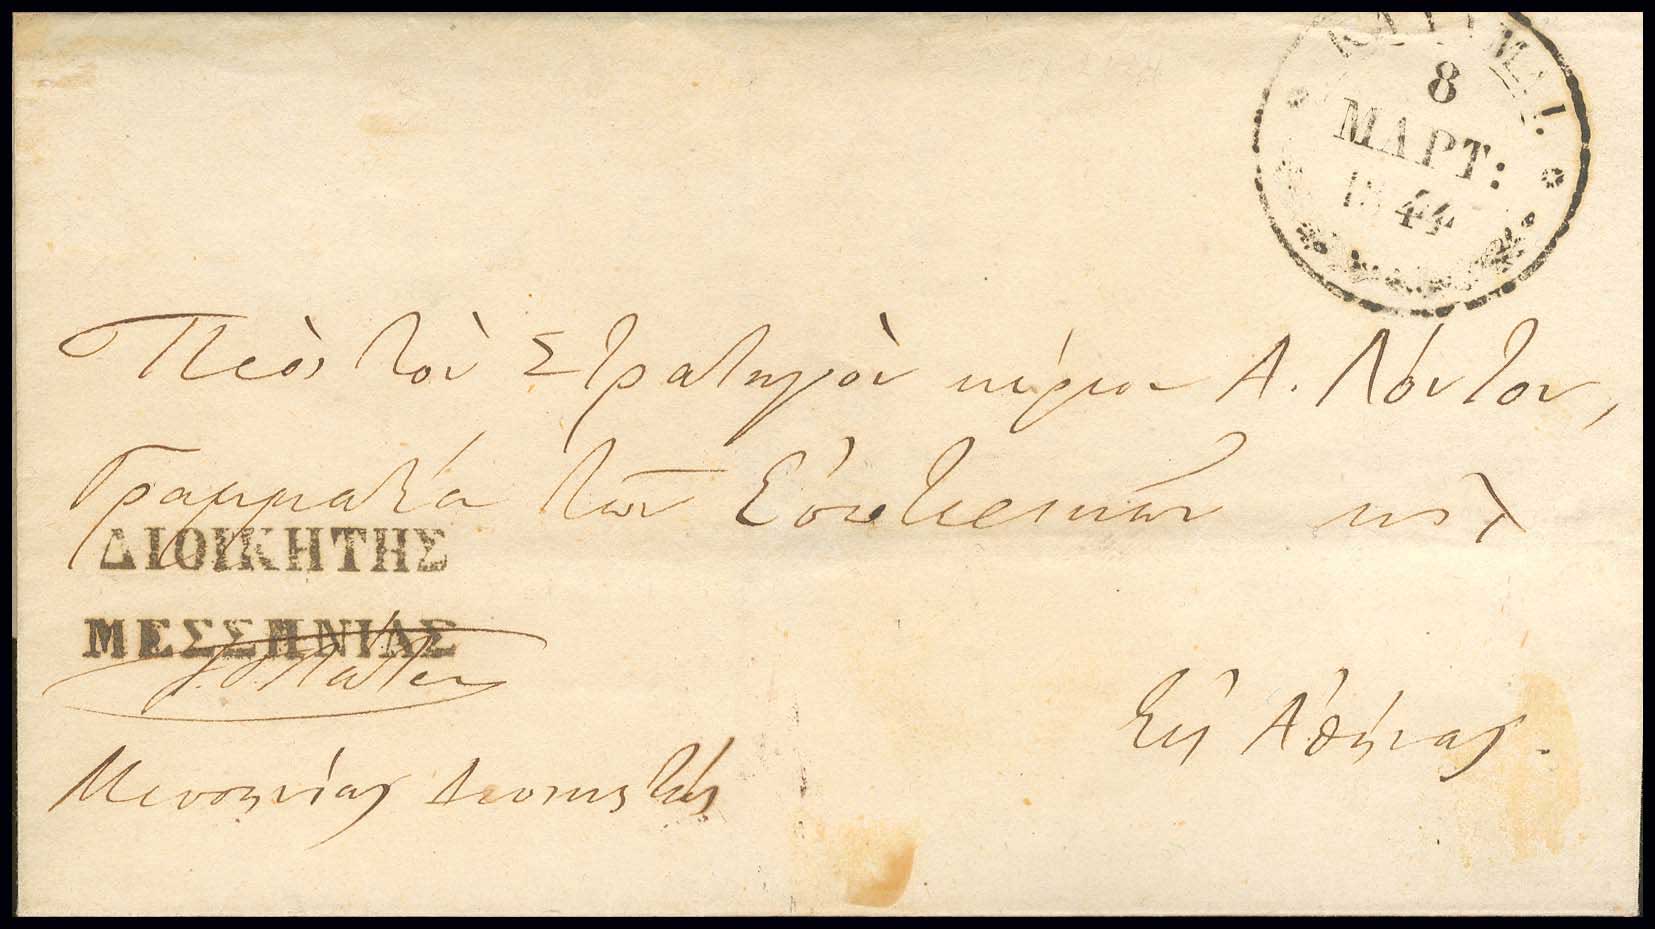 8
ΜΑΡΤ:
1844
Πρὸς τὸν Στρατηγὸν κύριον Α. Λόντον,
Γραμματέα τῶν Ἐσωτερικῶν κτλ
ΔΙΟΙΚΗΤΗΣ
ΜΕΣΣΗΝΙΑΣ
Εἰς Ἀθήνας.
Μεσσηνίας Διοικητής